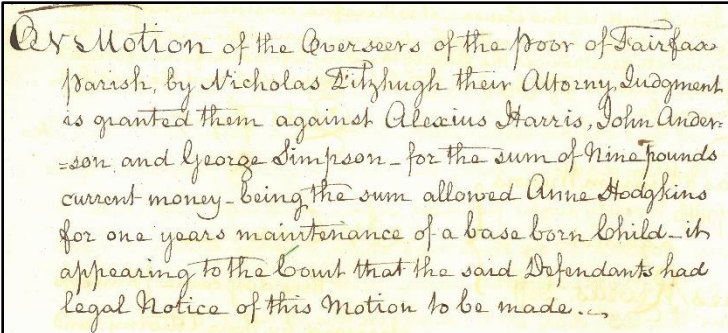 On Motion of the Overseers of the poor of Fairfax
Parish, by Nicholas Fitzhugh their Attorny, Judgment
is granted them against Alexius Harris, John Ander-
=son and George Simpson - for the sum of Nine pounds
current money - being the sum allowed Anne Hodgkins
for one years maintenance of a base born Child - it
appearing to the Court that the said Defendants had
legal Notice of this Motion to be made.